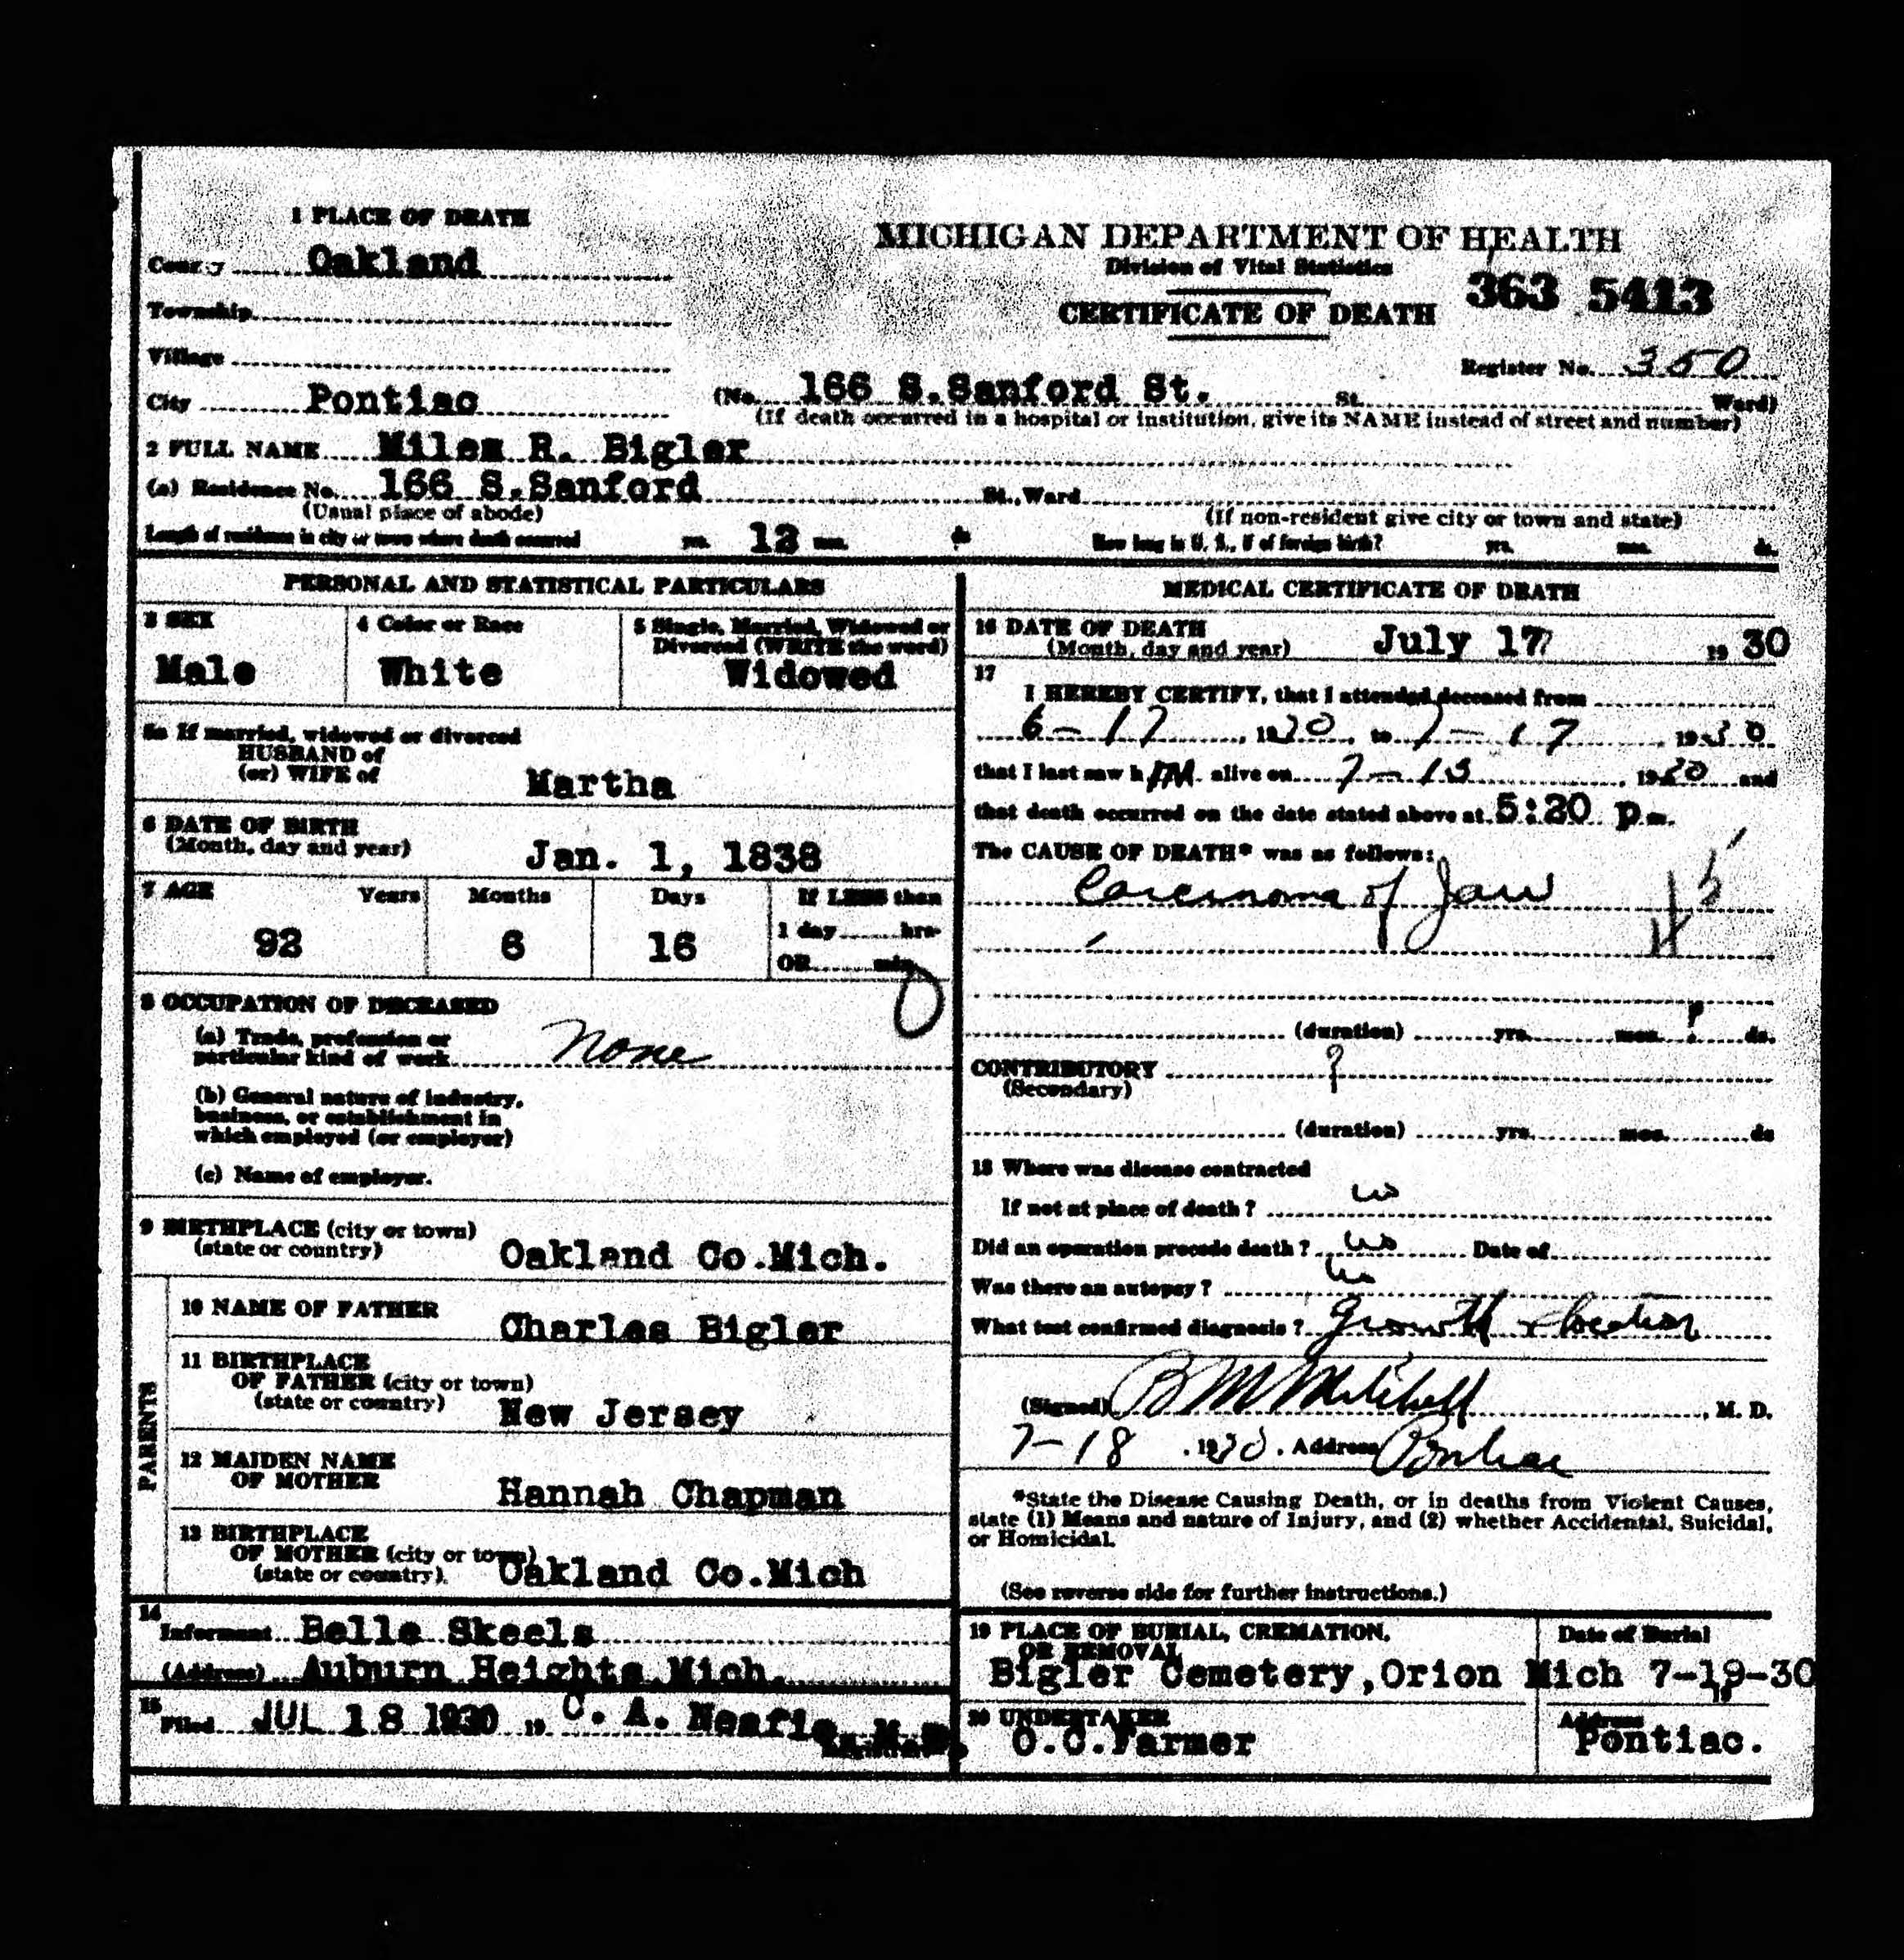 1 PLACE OF DEATH
County Oakland
Township
Village
City Pontiac
MICHIGAN DEPARTMENT OF HEALTH
Division of Vital Statistics
CERTIFICATE OF DEATH
363 5413
Register No. 350
(No. 166 S.Sanford St. St. Ward)
(If death occurred in a hospital or institution, give its NAME instead of street and number)
2 FULL NAME Miles R. Bigler
(a) Residence No. 166 S.Sanford St., Ward
(Usual place of abode)
(If non-resident give city or town and state)
Length of residence in city or town where death occurred yrs. 12 mos. ds.
How long in U. S., if of foreign birth? yrs. mos. ds.
PERSONAL AND STATISTICAL PARTICULARS
3 SEX
Male
4 Color or Race
White
5 Single, Married, Widowed or
Divorced (WRITE the word)
Widowed
5a If married, widowed or divorced
HUSBAND of
(or) WIFE of
Martha
6 DATE OF BIRTH
(Month, day and year)
Jan. 1, 1838
7 AGE Years Months Days If LESS than
1 day hrs.
OR min.
92 6 16
8 OCCUPATION OF DECEASED
(a) Trade, profession or
particular kind of work None
(b) General nature of industry,
business, or establishment in
which employed (or employer)
(c) Name of employer.
9 BIRTHPLACE (city or town)
(state or country)
Oakland Co.Mich.
PARENTS
10 NAME OF FATHER
Charles Bigler
11 BIRTHPLACE
OF FATHER (city or town)
(state or country)
New Jersey
12 MAIDEN NAME
OF MOTHER
Hannah Chapman
13 BIRTHPLACE
OF MOTHER (city or town)
(state or country)
Oakland Co.Mich
14
Informant Belle Skeels
(Address) Auburn Heights,Mich.
15
Filed JUL 18 1930 19 C. A. Neafie, M.D.
Registrar
MEDICAL CERTIFICATE OF DEATH
16 DATE OF DEATH
(Month, day and year)
July 17 19 30
17
I HEREBY CERTIFY, that I attended deceased from
6-17, 1930, to 7-17, 1930
that I last saw him alive on 7-15, 1930 and
that death occurred on the date stated above at 5:20 p m.
The CAUSE OF DEATH* was as follows:
Carcinoma of Jaw
(duration) yrs. mos. ? ds.
CONTRIBUTORY ?
(Secondary)
(duration) yrs. mos. ds
18 Where was disease contracted
If not at place of death? no
Did an operation precede death? no Date of
Was there an autopsy? no
What test confirmed diagnosis? Growth & location
(Signed) B M Mitchell, M. D.
7-18, 1930. Address Pontiac
*State the Disease Causing Death, or in deaths from Violent Causes,
state (1) Means and nature of Injury, and (2) whether Accidental, Suicidal,
or Homicidal.
(See reverse side for further instructions.)
19 PLACE OF BURIAL, CREMATION,
OR REMOVAL
Date of Burial
Bigler Cemetery,Orion Mich 7-19-30
20 UNDERTAKER
O.C.Farmer
Address
Pontiac.